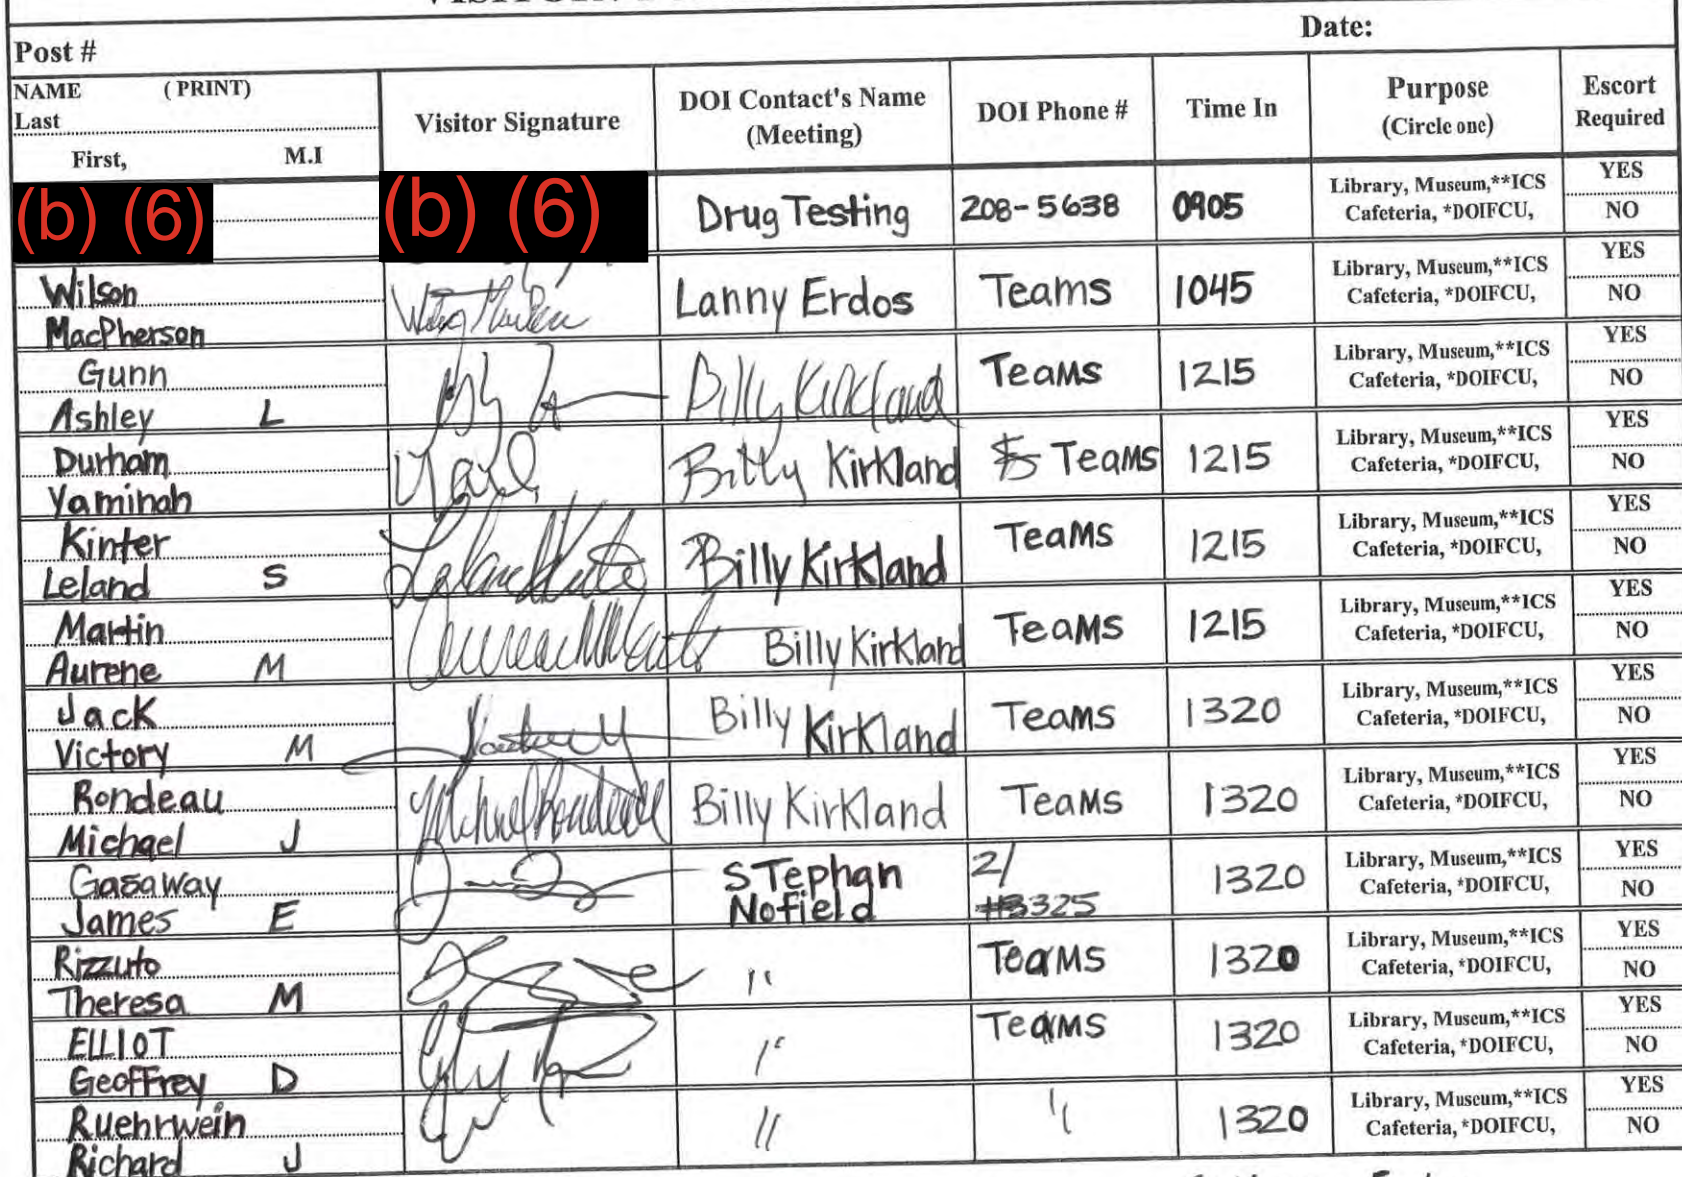 Post #
Date:
NAME ( PRINT)
Last
First, M.I
Visitor Signature
DOI Contact's Name
(Meeting)
DOI Phone #
Time In
Purpose
(Circle one)
Escort
Required
(b) (6)
(b) (6)
Drug Testing
208-5638
0905
Library, Museum,**ICS
Cafeteria, *DOIFCU,
YES
NO
Wilson
MacPherson
Lanny Erdos
Teams
1045
Library, Museum,**ICS
Cafeteria, *DOIFCU,
YES
NO
Gunn
Ashley L
Billy Kirkland
Teams
1215
Library, Museum,**ICS
Cafeteria, *DOIFCU,
YES
NO
Durham
Yaminah
Billy Kirkland
Teams
1215
Library, Museum,**ICS
Cafeteria, *DOIFCU,
YES
NO
Kinter
Leland S
Billy Kirkland
Teams
1215
Library, Museum,**ICS
Cafeteria, *DOIFCU,
YES
NO
Martin
Aurene M
Billy Kirkland
Teams
1215
Library, Museum,**ICS
Cafeteria, *DOIFCU,
YES
NO
Jack
Victory M
Billy Kirkland
Teams
1320
Library, Museum,**ICS
Cafeteria, *DOIFCU,
YES
NO
Rondeau
Michael J
Michael Rondeau
Billy Kirkland
Teams
1320
Library, Museum,**ICS
Cafeteria, *DOIFCU,
YES
NO
Gasaway
James E
STephan
Nofield
3325
1320
Library, Museum,**ICS
Cafeteria, *DOIFCU,
YES
NO
Rizzuto
Theresa M
"
Teams
1320
Library, Museum,**ICS
Cafeteria, *DOIFCU,
YES
NO
ELLIOT
Geoffrey D
"
Teams
1320
Library, Museum,**ICS
Cafeteria, *DOIFCU,
YES
NO
Ruehrwein
Richard J
"
"
1320
Library, Museum,**ICS
Cafeteria, *DOIFCU,
YES
NO